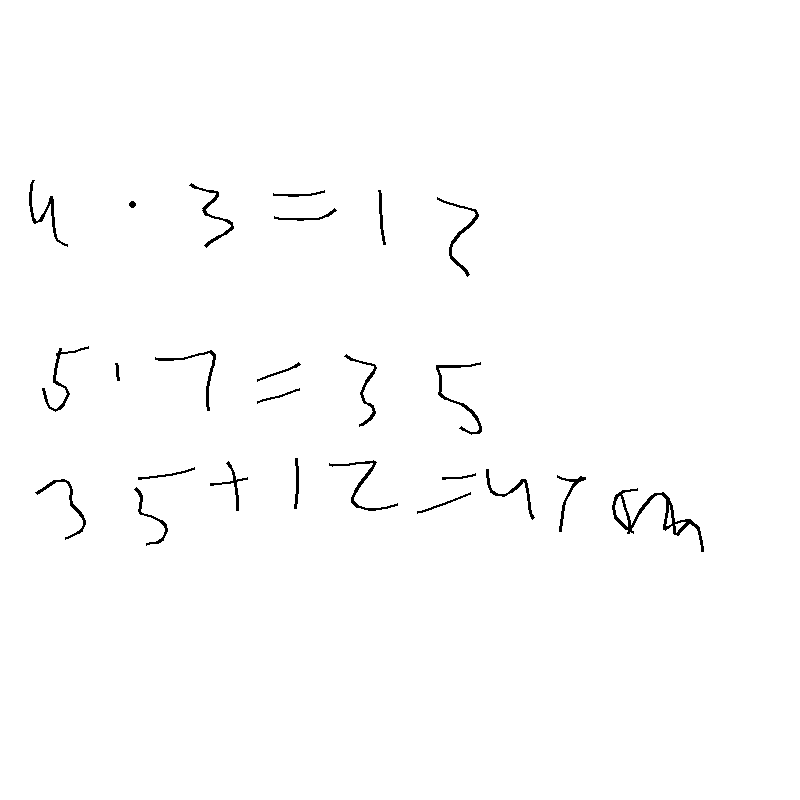 4 · 3 = 12
5 · 7 = 35
35 + 12 = 47 cm